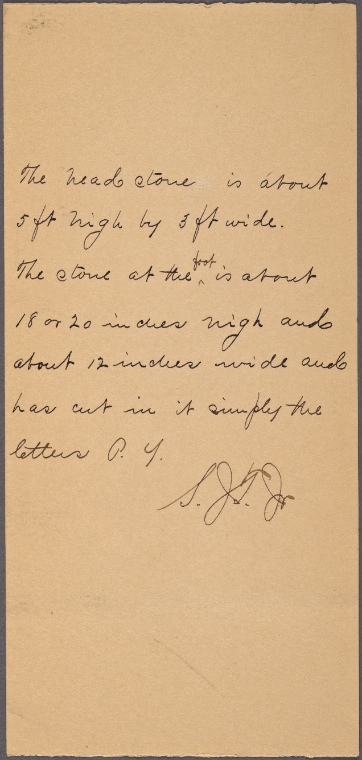 The head stone is about
5 ft high by 3 ft wide.
The stone at the foot is about
18 or 20 inches high and
about 12 inches wide and
has cut in it simply the
letters P. Y.
S. J. T. Jr